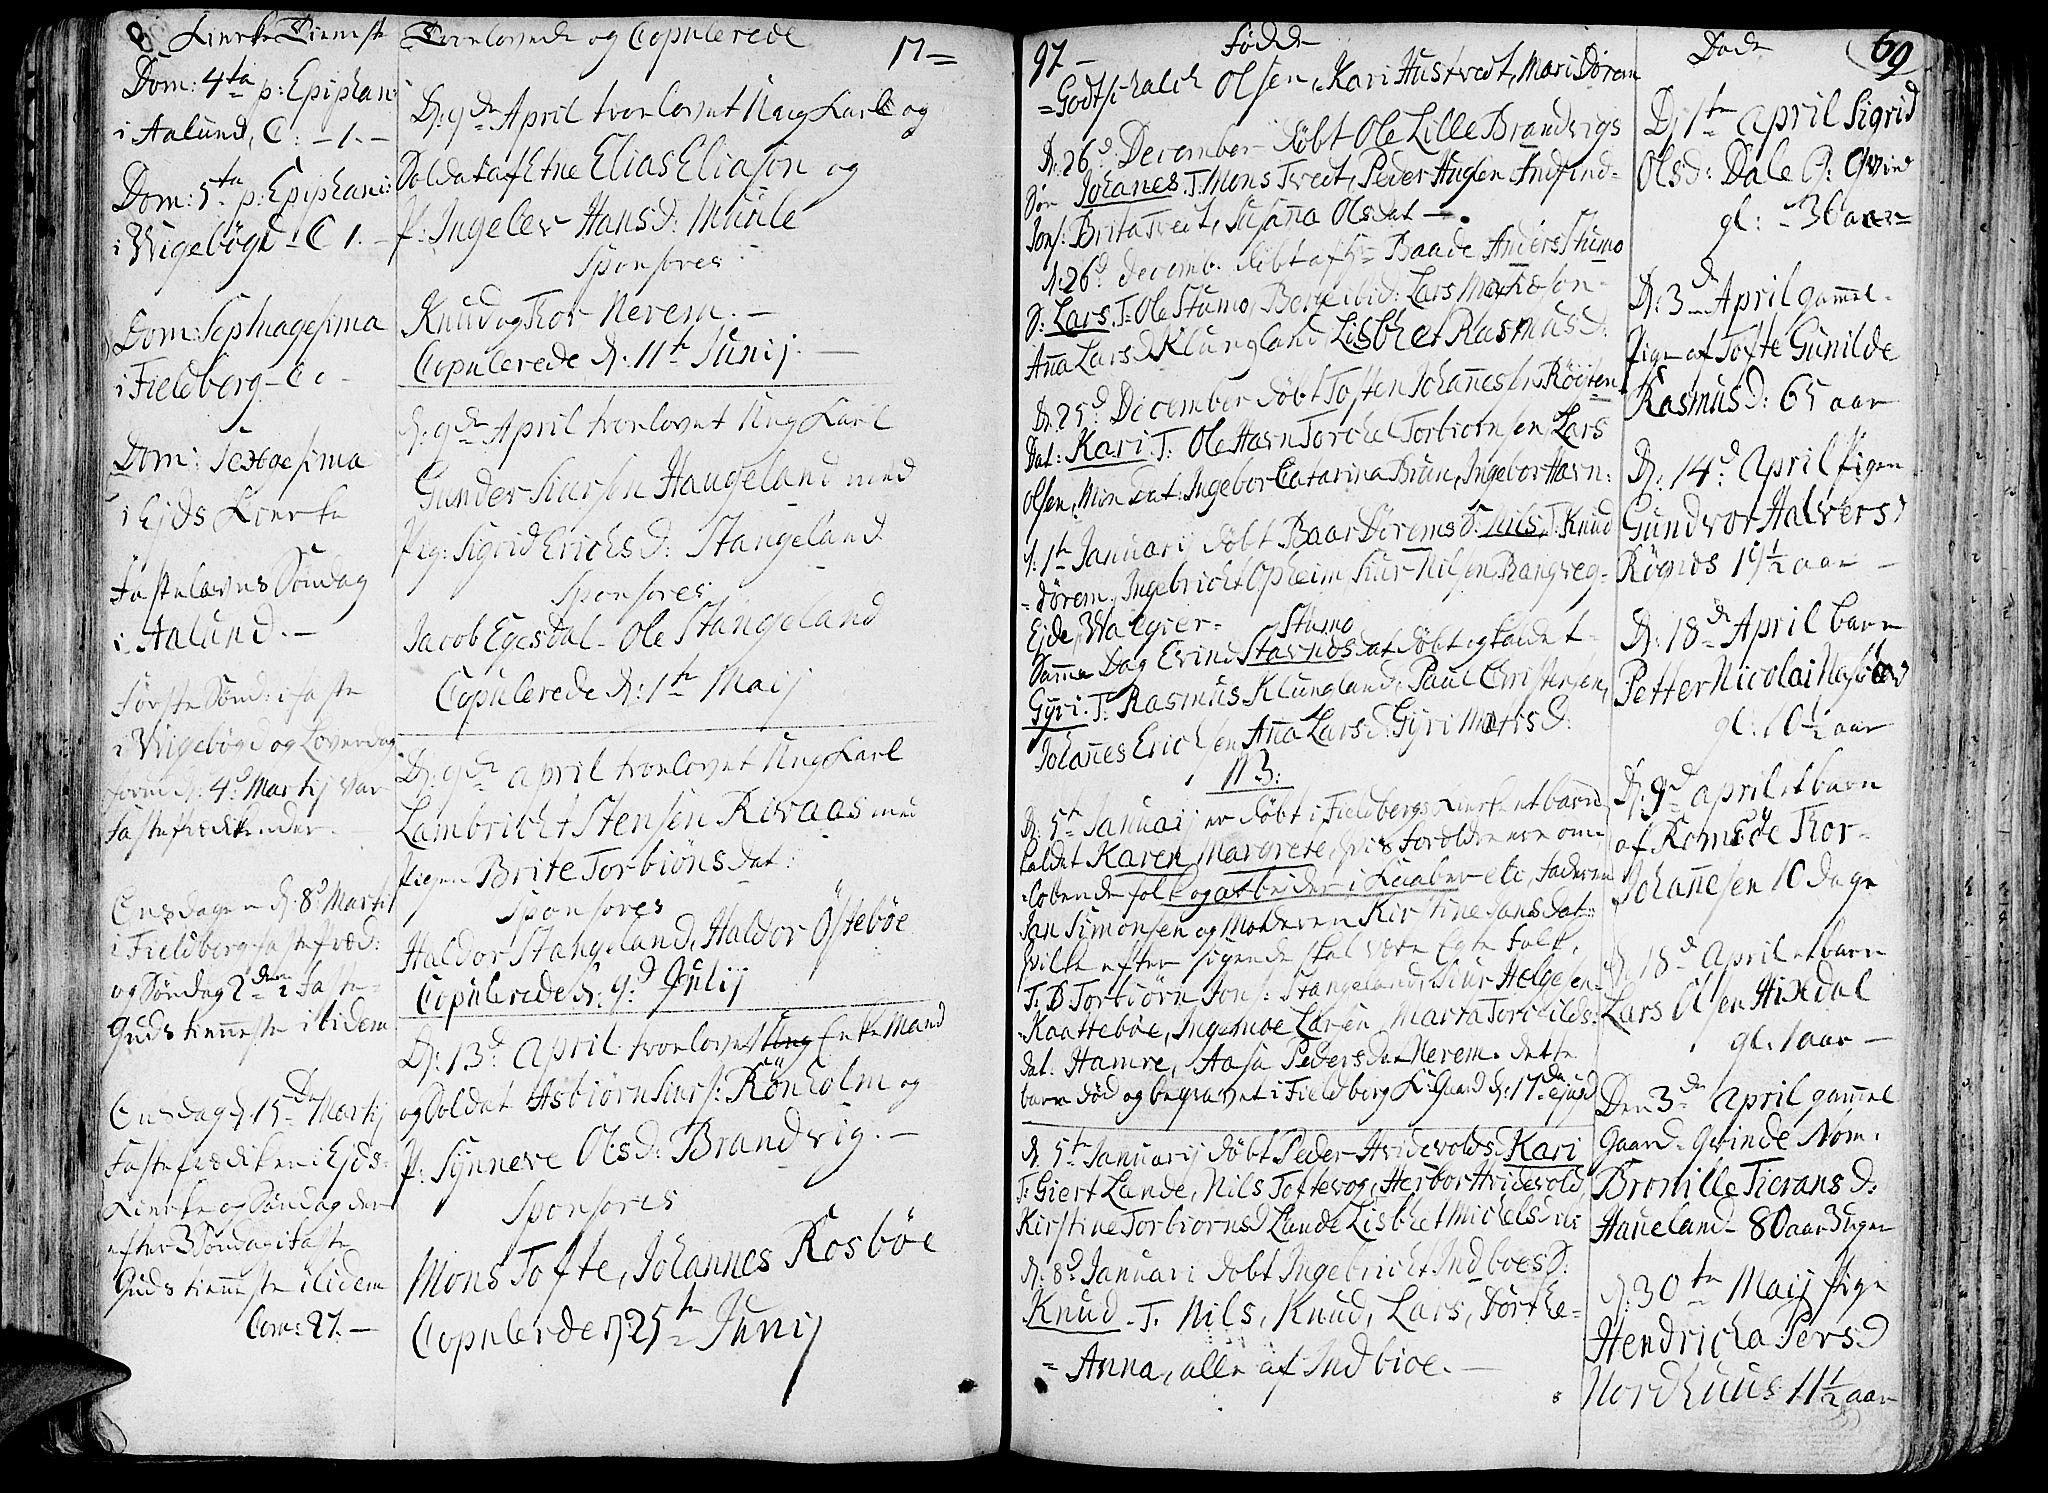 Kirke Tieneste
Dom: 4ta p: Epiphan:
i Aalund, C: - 1. -
Dom: 5ta p: Epiphani:
i Wigebögd - C 1. -
Dom: Septuagesima
i Fieldberg - C 0 -
Dom: Sexagesima
i Ejds Kircke
Fastelavns Söndag
i Aalund. -
Förste Sönd: i faste
i Wigebögd og Löverdag
forud d: 4d Martij var
fasteprædiken der.
Onsdagen d: 8d Martij
i Fieldberg fastepræd:
og Söndag 2den i Faste
Guds tienneste ibidem
Onsdag d: 15de Martij
Fasteprædiken i Ejds
Kircke og Söndag der
efter 3 Söndag i Faste
Guds tienneste ibidem
Com: 27. -
Trolovede og Copulerede 17 =
D: 9de April trolovet Ung Karl og
Soldat af Etne Elias Eliason og
P: Ingelev Hansd: Münle
Sponsores
Knud og Thor Nerem. -
Copulerede d: 11te Junij. -
D: 9de April trolovet Ung Karl
Gunder Siursen Haugeland med
Pig: Sigrid Erichsd: Stangeland
Sponsores
Jacob Egesdal - Ole Stangeland
Copulerede d: 1te Maij
D: 9de April trolovet Ung Karl
Lambricht Stensen Rivaas med
Pigen Brite Torbiöns dat:
Sponsores
Haldor Stangeland, Haldor Östeböe
Copulerede d: 9d Julij
D: 13d April trolovet Ung Enke Mand
og Soldat Asbiörn Siurs: Rönholm og
P: Synneve Olsd: Brandvig. -
Sponsores
Mons Tofte, Johannes Rosböe
Copulerede d: 25te Junij
97 - Födde
= Godtschalch Olsen, Kari Hustvedt, Mari Dörem
D: 26d December döbt Ole Lille Brandvigs
Sön Johanes. T. Mons Tvedt, Peder Hugen Andfind-
Jons: Brita Tvedt, Susanna Olsdat -.
D: 26d decemb. döbt af Hr Baade Anders Stumo
S: Lars. T: Ole Stumo, Berge ibid: Lars
Anna Larsd Klungland Lisbhet Rasmusd:
D: 25d December döbt Tosten Johannesen Röiten
Dat: Kari T: Ole Havn Torchel Torbiornsen Lars
Olsen, Mon dat: Ingebor Catarina Brun, Ingebor Havn:
d: 1te Januarij döbt Baar Dörems S: Nils. T: Knud
- Dörem, Ingebricht Opheim, Siur Nilsen, Rangveg -
Ejde, Walgier - Stumo
Samme Dag Evind Stavnos dat döbt og kaldet -
Gyri. T: Rasmus Klungland, Paul Christensen,
Johannes Erichsen Anna Larsd: Gyri
N3:
D: 5te Januarij er döbt i Fieldbergs Kircke et barn
kaldet Karen Margrete, hvis Forældre ere om-
-löbende folk og arbeider i Kaaber etc, Faderen
Jan Simonsen og Moderen Kirstine Jansdat:
hvilke efter sigende skal være Egte Folk.
T: B Torbiörn Jons: Stangeland, Siur Helgesen
Kaatteböe, Larsen Marta Torchilds:
dat: Hamre, Aasa Pedersdat Nerem. dette
barn död og begravet i Fieldberg K:Gaard d: 17de ejusd
d: 5te Januarij döbt Peder Hvidevolds Kari
T: Giert Lande, Nils Toftevog, Herbor Hvidevold,
Kirstine Torbiornsd Lande Lisbhet Michelsd
d: 8d Januari döbt Ingebricht Indboes S:
Knud. T: Nils, Knud, Lars, Dörthe -
= Anna, alle af Indbioe. -
Döde 69
D: 1te April Sigrid
Olsd: Dale G: Qvind
gl: - 36 aar =
D: 3d April gammel
Pige af Tofte Gunilde
Rasmusd: 65 aar
D: 14d April Pigen
Gundvor Halversd
Rögnos 19½ aar -
D: 18de April barn
Petter Nicolai
gl: 10½ aar
D: 9d April et barn
af Romsöe Thor
Johannesen 10 dage
D: 18d April et barn
Lars Olsen Hixdal
gl. 1 aar -
Den 3de April gammel
Gaard-Qvinde Nom.
Bronille Tierans D:
Haueland - 80 aar 3 uger
d: 30te Maij Pige
Hendricha Persd
Nordhuus 11½ aar